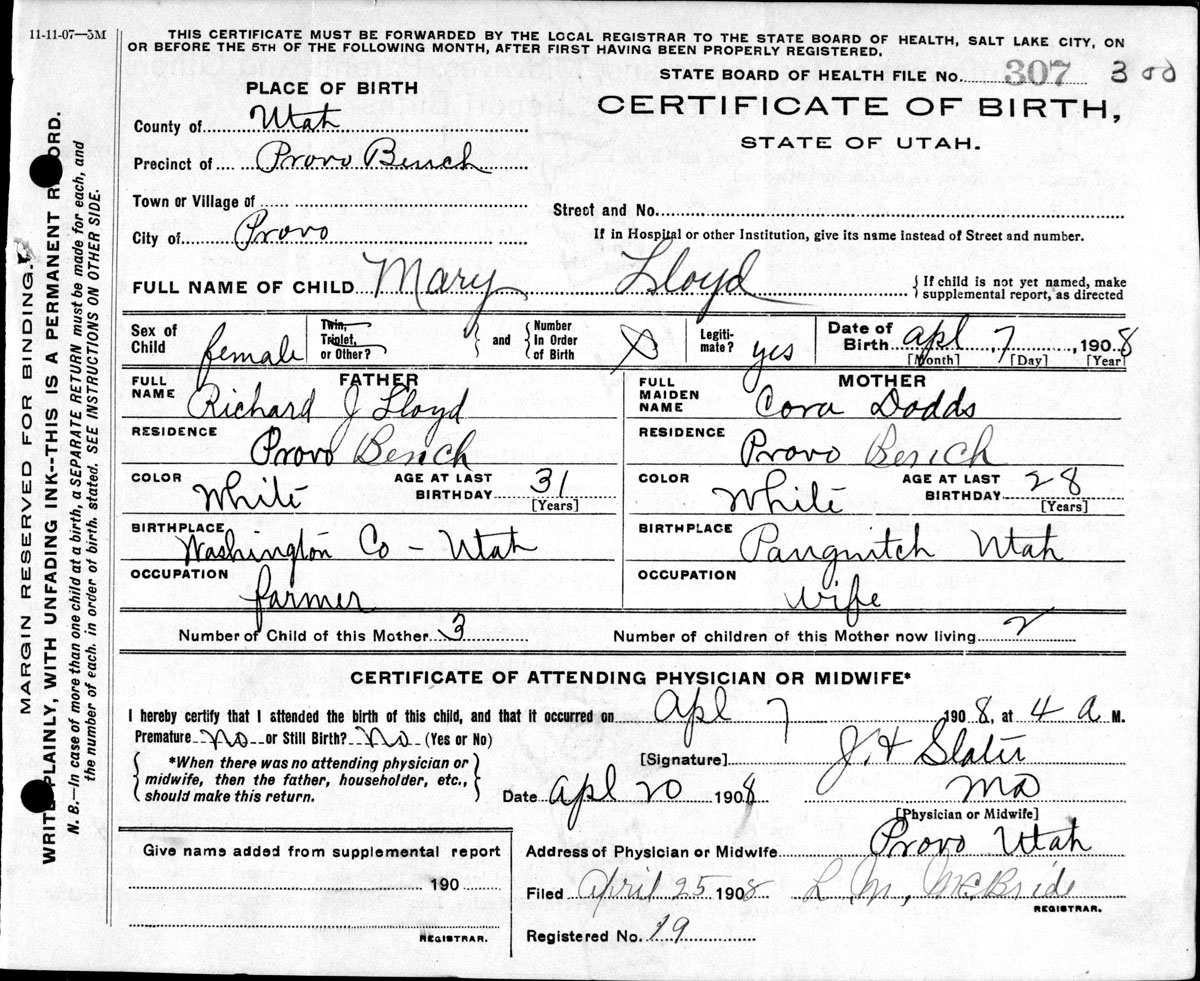 11-11-07—5M
THIS CERTIFICATE MUST BE FORWARDED BY THE LOCAL REGISTRAR TO THE STATE BOARD OF HEALTH, SALT LAKE CITY, ON
OR BEFORE THE 5TH OF THE FOLLOWING MONTH, AFTER FIRST HAVING BEEN PROPERLY REGISTERED.
STATE BOARD OF HEALTH FILE No. 307 300
PLACE OF BIRTH
CERTIFICATE OF BIRTH,
STATE OF UTAH.
County of Utah
Precinct of Provo Bench
Town or Village of
Street and No.
City of Provo
If in Hospital or other Institution, give its name instead of Street and number.
FULL NAME OF CHILD Mary Lloyd
{ If child is not yet named, make
supplemental report, as directed
Sex of Child female
Twin, Triplet, or Other?
and
Number In Order of Birth
Legiti-mate? yes
Date of Birth apl 7, 1908
[Month] [Day] [Year]
FATHER
FULL NAME Richard J Lloyd
RESIDENCE Provo Bench
COLOR White AGE AT LAST BIRTHDAY 31
[Years]
BIRTHPLACE Washington Co - Utah
OCCUPATION farmer
MOTHER
FULL MAIDEN NAME Cora Dodds
RESIDENCE Provo Bench
COLOR White AGE AT LAST BIRTHDAY 28
[Years]
BIRTHPLACE Panguitch Utah
OCCUPATION wife
Number of Child of this Mother 3 Number of children of this Mother now living 2
CERTIFICATE OF ATTENDING PHYSICIAN OR MIDWIFE*
I hereby certify that I attended the birth of this child, and that it occurred on Apl 7 1908, at 4 a M.
Premature No or Still Birth? No (Yes or No)
*When there was no attending physician or
midwife, then the father, householder, etc.,
should make this return.
[Signature] J. H Slater
MD
[Physician or Midwife]
Date apl 20 1908
Address of Physician or Midwife Provo Utah
Give name added from supplemental report
190
REGISTRAR.
Filed April 25 1908 L. M. McBride
REGISTRAR.
Registered No. 19
MARGIN RESERVED FOR BINDING.
WRITE PLAINLY, WITH UNFADING INK--THIS IS A PERMANENT RECORD.
N. B.—In case of more than one child at a birth, a SEPARATE RETURN must be made for each, and
the number of each, in order of birth, stated. SEE INSTRUCTIONS ON OTHER SIDE.